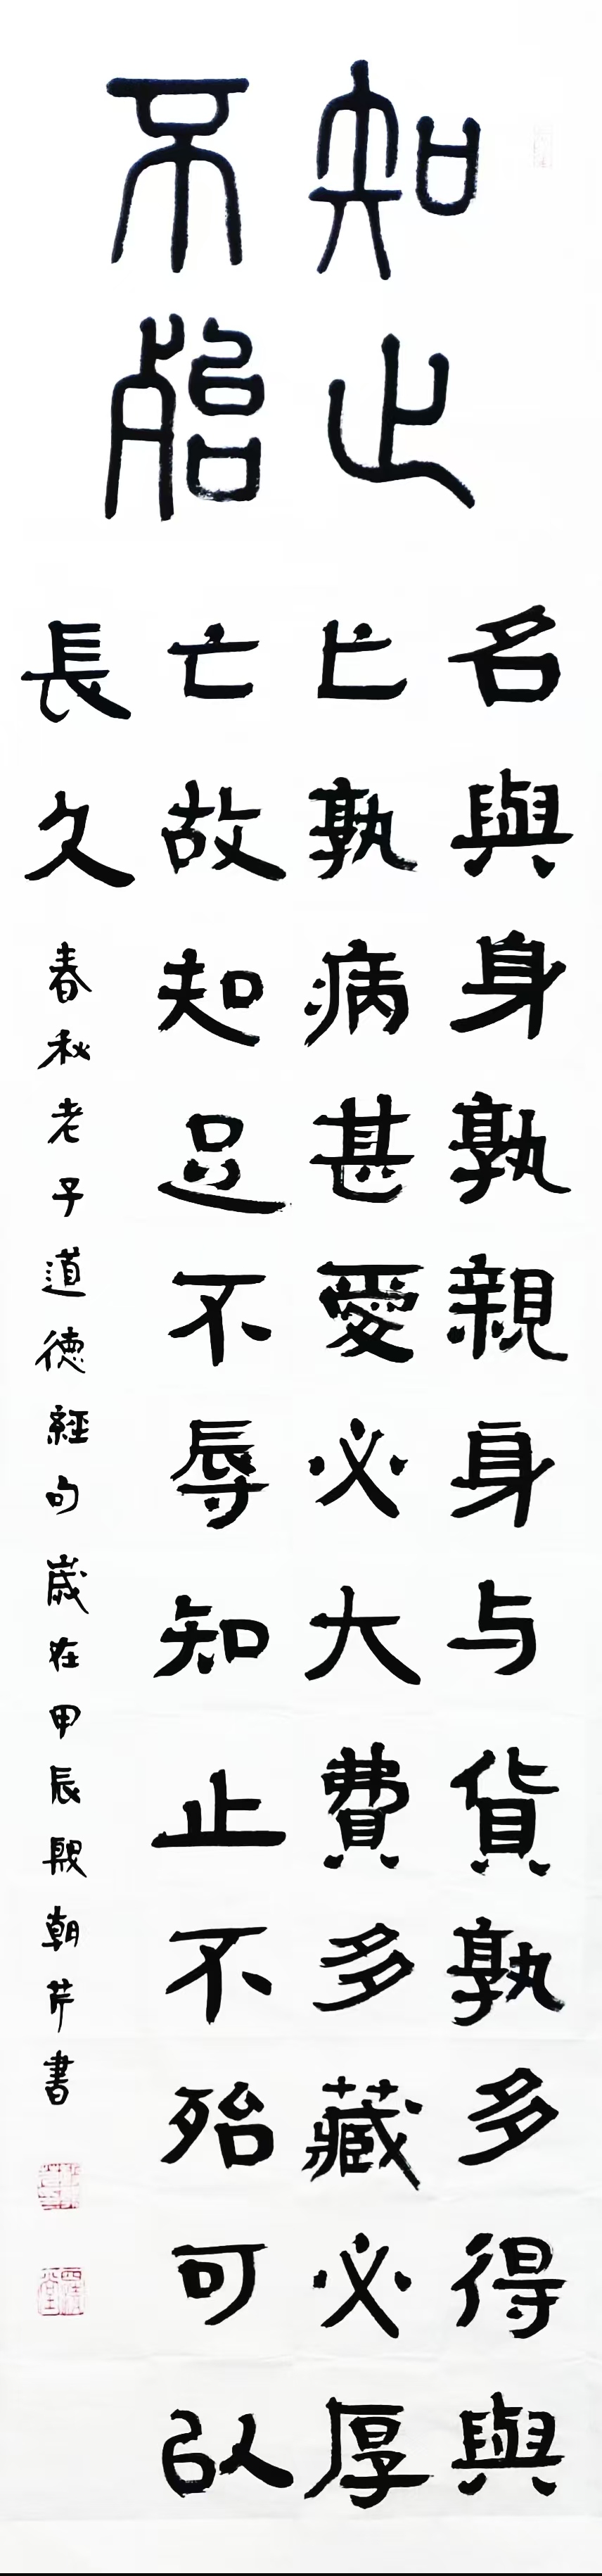 知止
不殆
名與身孰親身与貨孰多得與
亡孰病甚愛必大費多藏必厚
亡故知足不辱知止不殆可以
長久
春秋老子道德經句歲在甲辰熙朝芹書